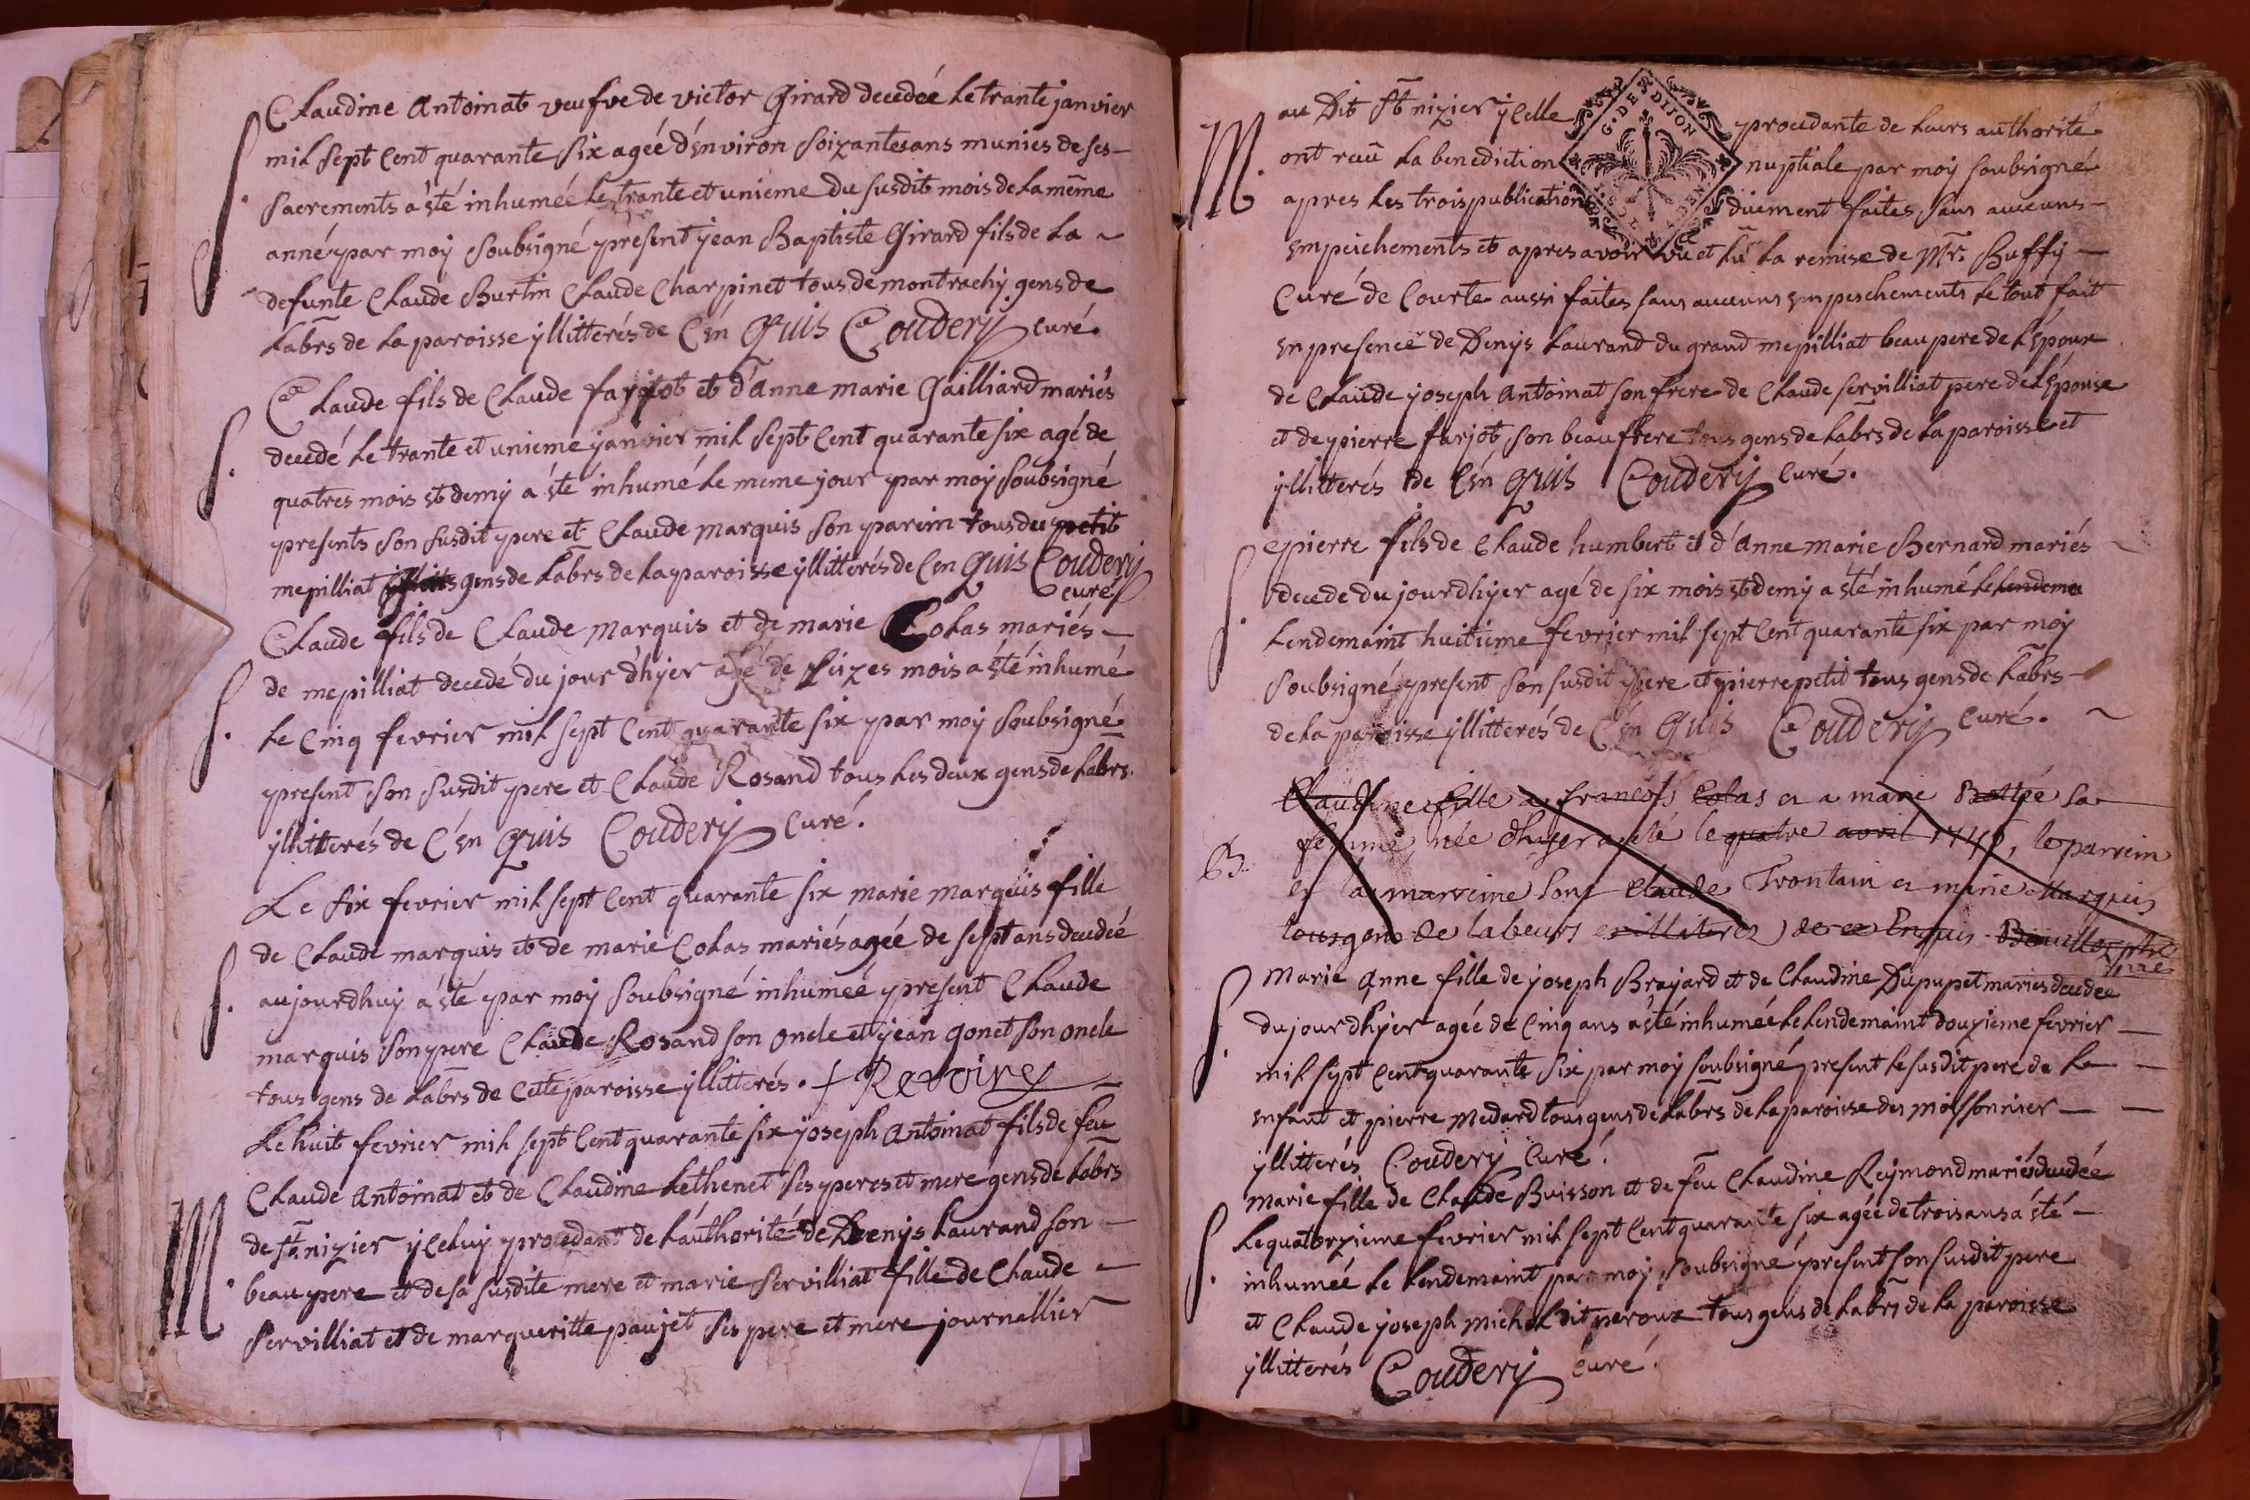 Claudine Antoinat veufve de victor Girard decedeé le trante janvier
mil sept cent quarante six ageé d'environ soizantes ans munies de ses
sacrements a ŝté inhumeé le trante et unieme du susdit mois de la même
anné par moy soubsigné present jean Baptiste Girard fils de la
defunte Claude Burtin Claude Charpinet tous de montrachy gens de
S.
labr̃s de la paroisse yllitterés de C'en Quis Coudery curé.
Claude fils de Claude farjot et d'Anne marie Gailliard mariés
decedé le trante et unieme janvier mil sept cent quarante six agé de
S.
quatres mois et demy a ŝté inhumé le meme jour par moy soubsigné
presents son susdit pere et Claude marquis son parein tous du petit
mepilliat gens de labr̃s de la paroisse yllitterés de Cen Quis Coudery
curé
Claude fils de Claude marquis et de marie Colas mariés
de mepilliat decedé du jour d'hyer agé de seizes mois a ŝté inhumé
S.
le cinq fevrier mil sept cent quarante six par moy soubsigné
present son susdit pere et Claude Rosand tous les deux gens de labrs
yllitterés de C'en Quis Coudery curé.
Le six fevrier mil sept cent quarante six marie marquis fille
de Claude marquis et de marie Colas mariés ageé de sept ans decedeé
S.
aujourdhuy a ŝté par moy soubsigné inhumeé present Claude
marquis son pere Claude Rosand son oncle et jean gonet son oncle
tous gens de labr̃s de cette paroisse yllitterés. + Revoire
Le huit fevrier mil sept cent quarante six joseph Antoinat fils de feu
Claude Antoinat et de Claudine Lethenet ses peres et mere gens de labr̃s
M.
de st. nizier yceluy procedant de l'authorité de Denys Laurand son
beau pere et de sa susdite mere et marie Servilliat fille de Claude
Servilliat et de margueritte paujet ses pere et mere journallier
au Dit St nizier ycelle procedante de leurs authorite
G. DE DIJON
M.
ont reçu la benediction nuptiale par moy soubsigné
apres les trois publications duement faites sans aucuns
empeichements et apres avoir vû et lû la remise de Mr. Buffy
Curé de Courte aussi faites sans aucuns empeschements le tout fait
en presence de Denys Laurand du grand mepilliat beau pere de l'Epoux
de Claude joseph Antoinat son frere de Claude servilliat pere de l'Epouse
et de pierre farjot son beau frere tous gens de labrs de la paroisse et
yllitterés de C'en Quis Coudery curé.
pierre fils de Claude humbert et d'Anne marie Bernard mariés
decede du jourdhyer agé de six mois et demy a ŝté inhumé le lendema
S.
lendemaint huitieme fevrier mil sept cent quarante six par moy
soubsigné present son susdit pere et pierre petit tous gens de labr̃s
de la paroisse yllitterés de C'en Quis Coudery curé.
Claudine fille a francois Colas et a marie sa
femme née dhyer a été le quatre avril 1746, le parrein
B.
et la marreine sont Claude Trontain et marie Marquis
tous gens de labeurs et illiterez de ce Enquis
Marie Anne fille de joseph Brajard et de Claudine Dupupet mariés decedee
S.
du jourdhyer ageé de cinq ans a ŝté inhumeé le lendemaint douzieme fevrier
mil sept cent quarante six par moy soubsigné present le susdit pere de le
enfant et pierre Medard tous gens de labr̃s de la paroisse des moissonnier
yllitterés Coudery Curé.
marie fille de Claude Buisson et de feu Claudine Reymond mariés decedeé
S.
le quatorzieme fevrier mil sept cent quarante six ageé de trois ans a ŝté
inhumeé le lendemaint par moy soubsigné present son susdit pere
et Claude joseph michel dit peroux tous gens de labr̃s de la paroisse
yllitterés Coudery curé.